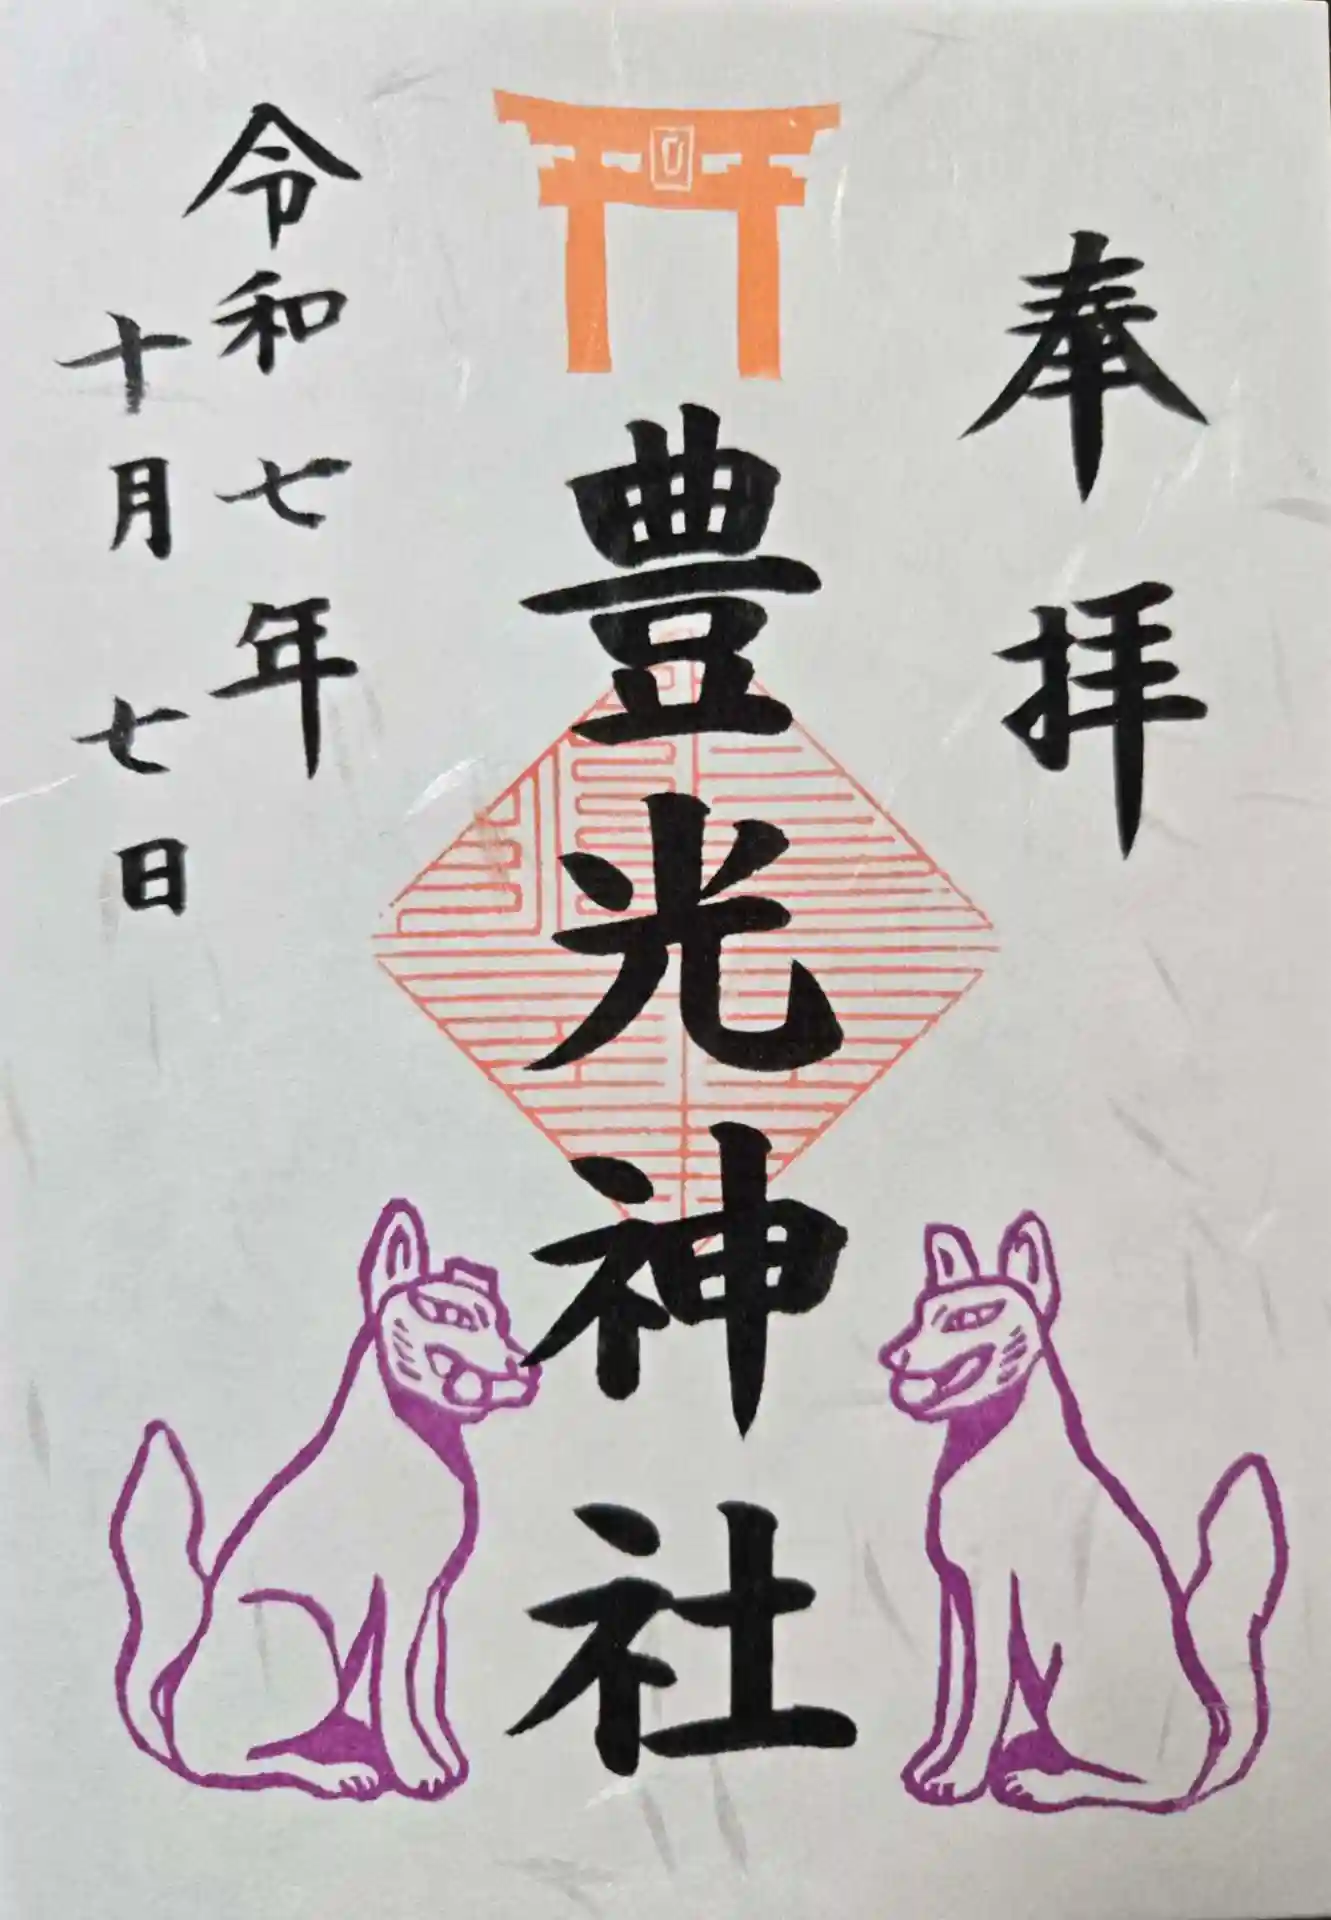 奉拝
豊光神社
令和七年
十月七日